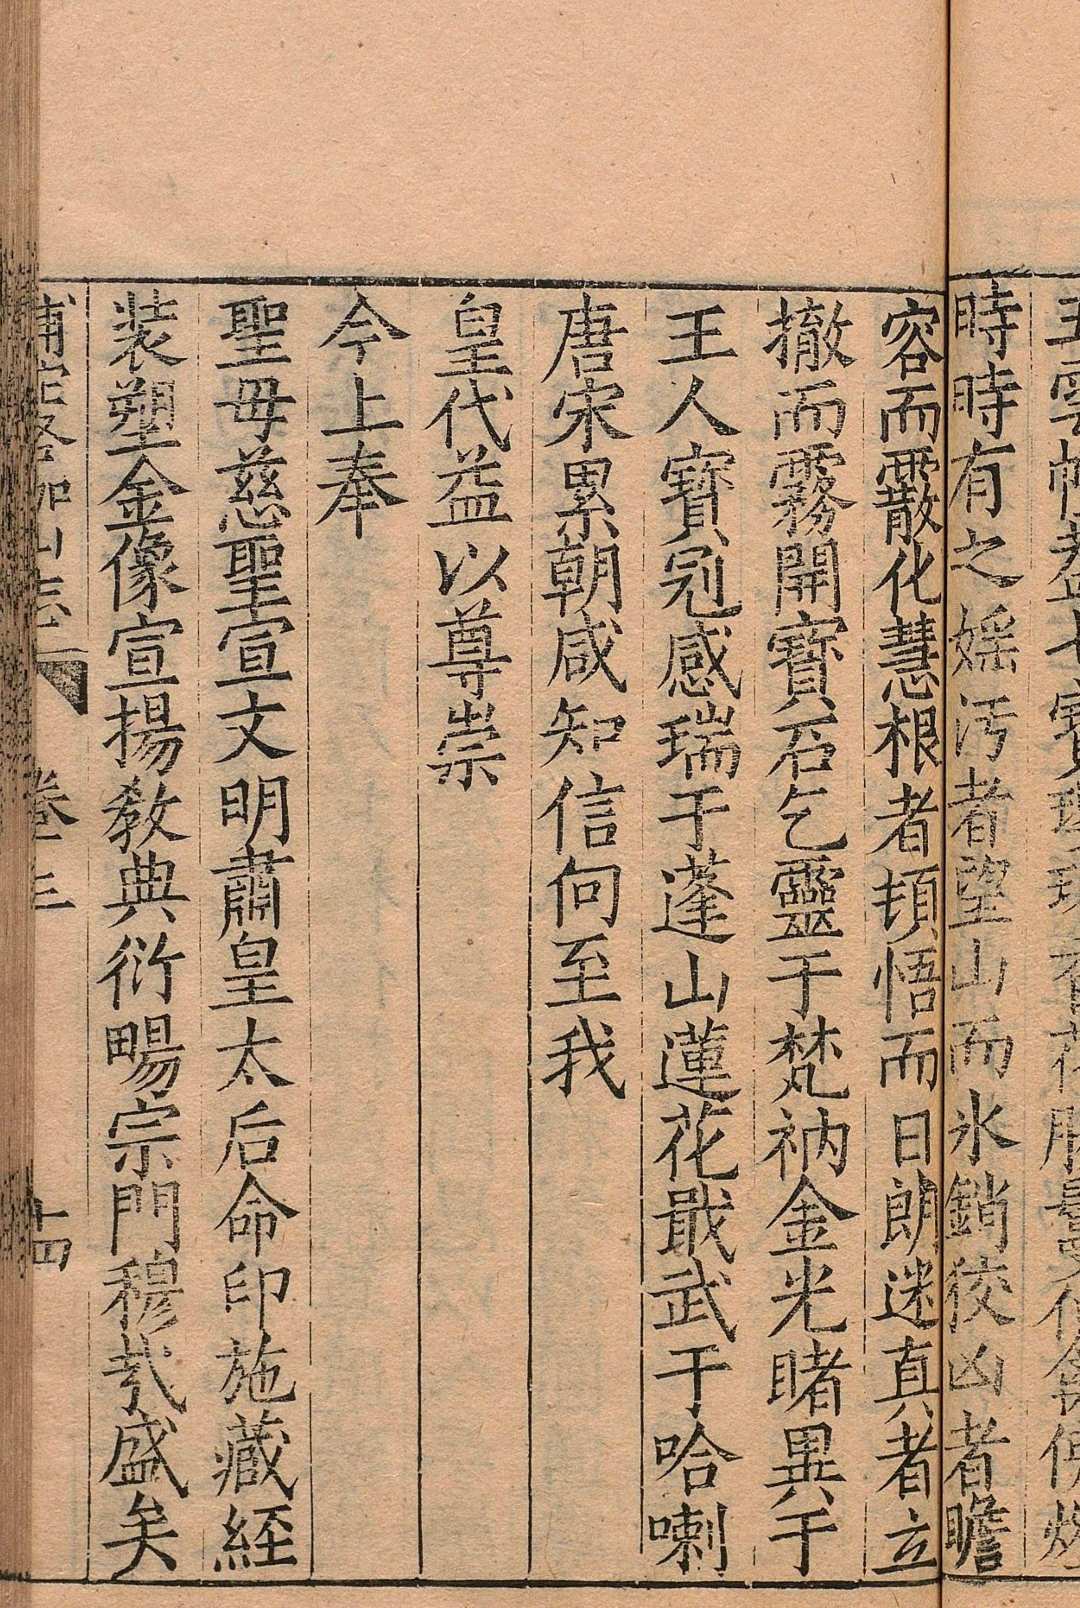 五雲幢蓋七寶
時時有之婬污者望山而氷銷狡凶者瞻
容而霰化慧根者頓悟而日朗迷真者立
撤而霧開寶石乞靈于梵衲金光睹異于
王人寶冠感瑞于蓬山蓮花戢武于哈喇
唐宋累朝咸知信向至我
皇代益以尊崇
今上奉
聖母慈聖宣文明肅皇太后命印施藏經
装塑金像宣揚教典衍暢宗門穆哉盛矣
補陀洛伽山志 卷三 十四